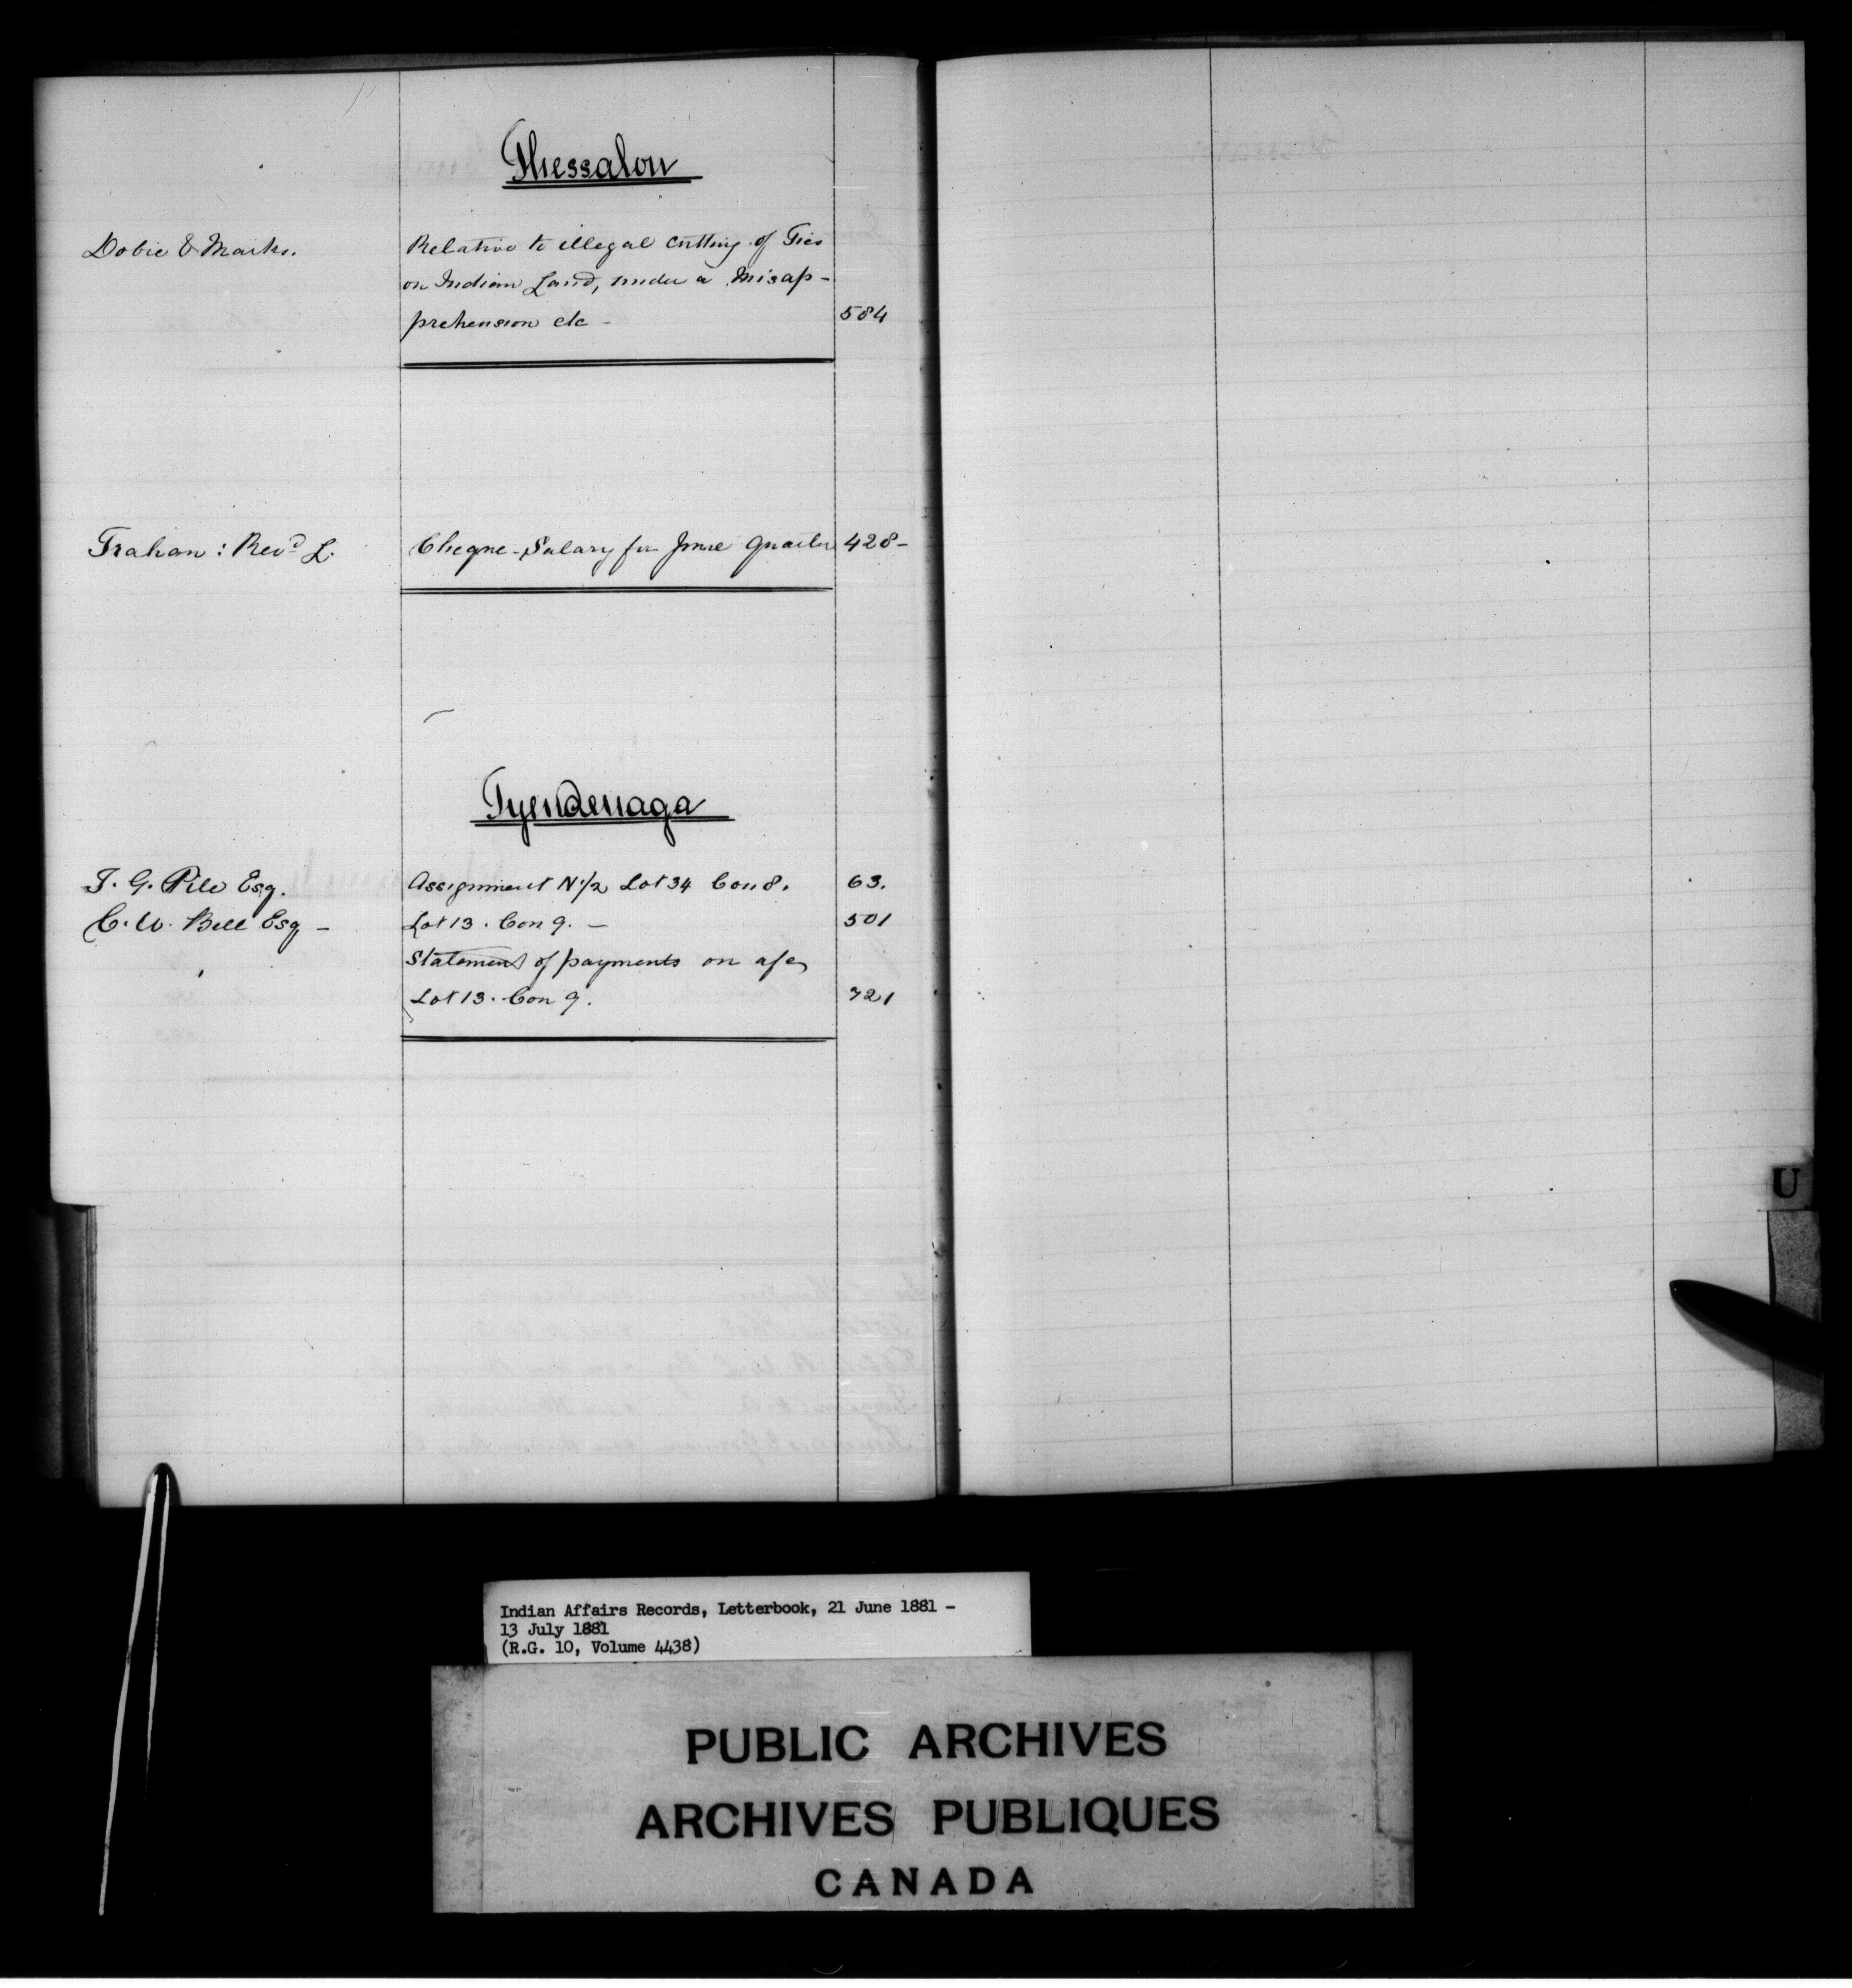 Thessalon
Dobie & Marks. Relative to illegal cutting of Ties
on Indian Land, under a Misap-
prehension etc - 584
Trahan : Revd L. Cheque - Salary for June Quarter 428-
Tyendenaga
T. G. Pile Esq. Assignment N 1/2 Lot 34 Con 8. 63.
C. W. Bell Esq - Lot 13. Con 9. - 501
Statement of payments on a/c
Lot 13. Con 9. 721
U
Indian Affairs Records, Letterbook, 21 June 1881 -
13 July 1881
(R.G. 10, Volume 4438)
PUBLIC ARCHIVES
ARCHIVES PUBLIQUES
CANADA